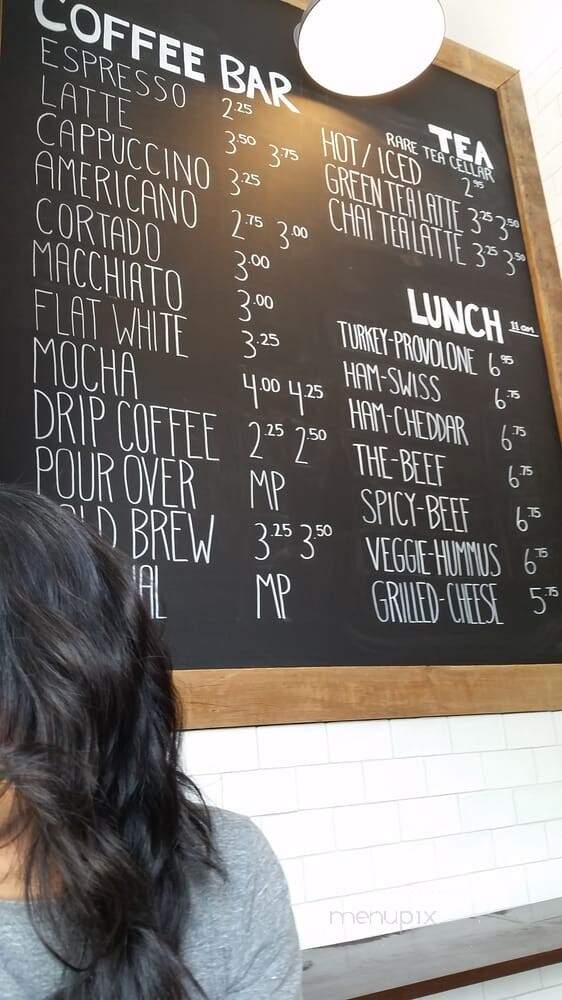 COFFEE BAR
ESPRESSO 2.25
LATTE 3.50 3.75
CAPPUCCINO 3.25
AMERICANO 2.75 3.00
CORTADO 3.00
MACCHIATO 3.00
FLAT WHITE 3.25
MOCHA 4.00 4.25
DRIP COFFEE 2.25 2.50
POUR OVER MP
OLD BREW 3.25 3.50
AL MP
TEA
RARE TEA CELLAR
HOT / ICED 2.95
GREEN TEA LATTE 3.25 3.50
CHAI TEA LATTE 3.25 3.50
LUNCH 11am
TURKEY-PROVOLONE 6.95
HAM-SWISS 6.75
HAM-CHEDDAR 6.75
THE-BEEF 6.75
SPICY-BEEF 6.75
VEGGIE-HUMMUS 6.75
GRILLED-CHEESE 5.75
menupix